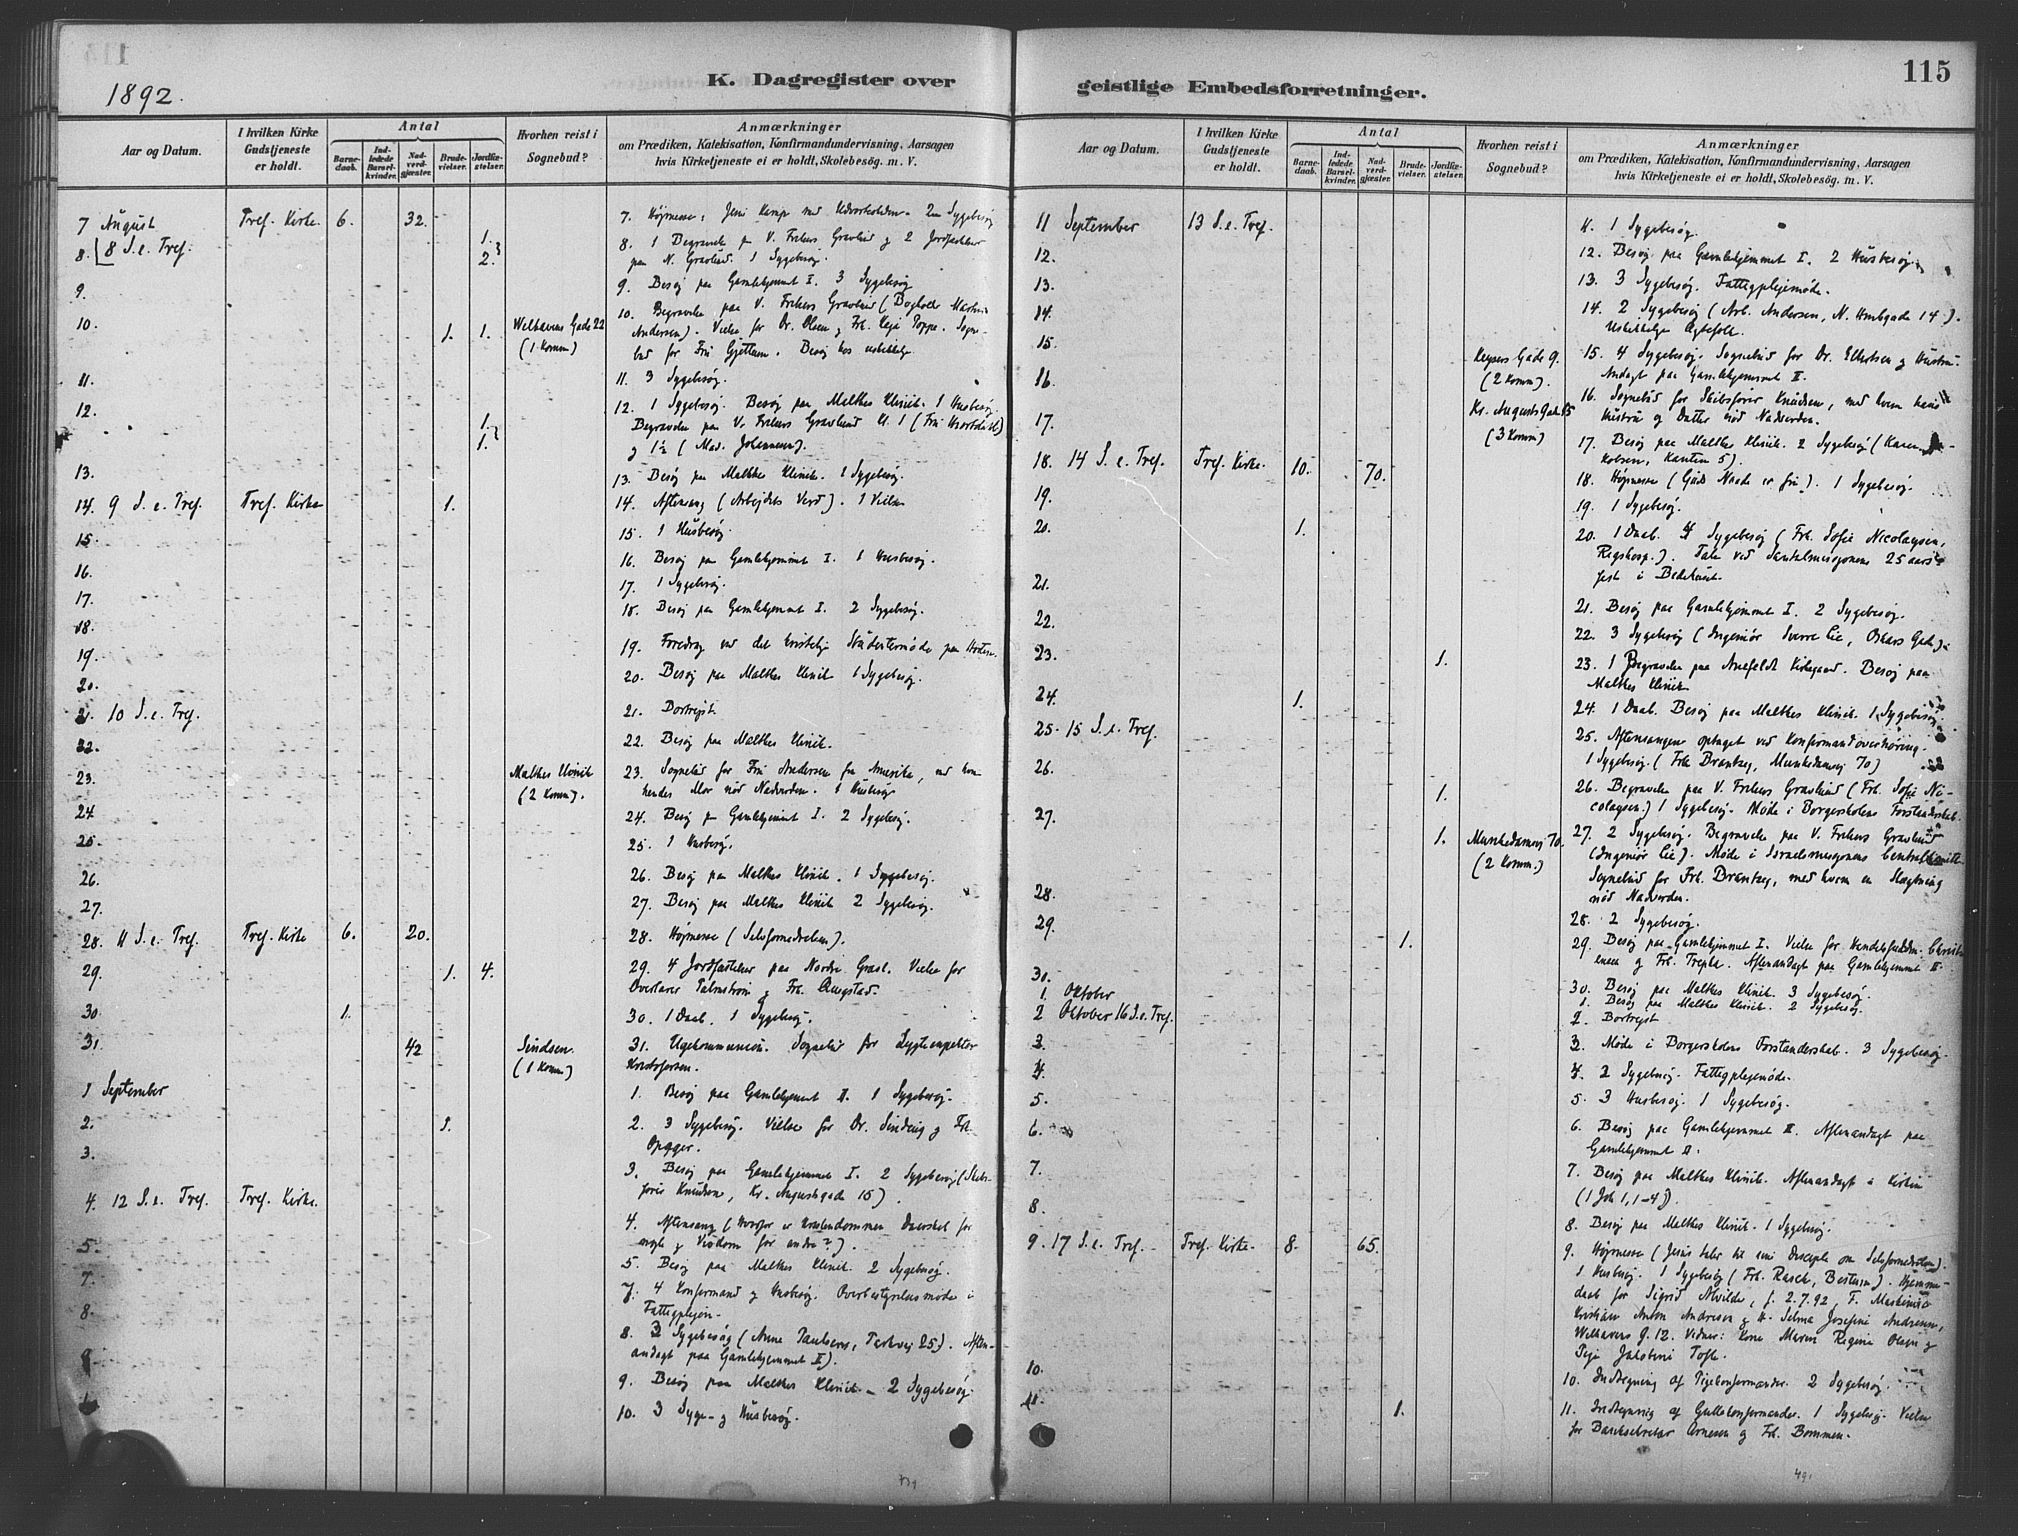 115
1892.
K. Dagregister over geistlige Embedsforretninger.
Aar og Datum.
I hvilken Kirke Gudstjeneste er holdt.
Antal
Barnedaab.
Indledede Barselkvinder.
Nadverdgjæster.
Brudevielser.
Jordfæstelser.
Hvorhen reist i Sognebud?
Anmærkninger
om Prædiken, Katekisation, Konfirmandundervisning, Aarsagen
hvis Kirketjeneste ei er holdt, Skolebesög. m. V.
7 August Tref. Kirke 6. 32.
7. Højmesse: 2 Sygebesøg
8. 8 S. e. Tref. 1. 2.
8. 1 Begravelse V. Frelsers Gravlund og 2 Jordfæstelser
paa N. Gravlund. 1 Sygebesøg.
9.
9. Besøg paa Gamlehjemmet I. 3 Sygebesøg
10. 1. 1. Welhavens Gade 22
(1 Komm)
10. Begravelse paa V. Frelsers Gravlund (
Andersen). Vielse for Dr. Olsen og Frk. Poppe. Sogne-
bud for Fru
11.
11. 3 Sygebesøg.
12. 1. 1.
12. 1 Sygebesøg. Besøg paa Malthes Klinik. 1 Husbesøg
Begravelse paa V. Frelsers Gravlund Kl. 1 (Fru
og 1½ (Mad. Johannesen).
13.
13. Besøg paa Malthes Klinik. 1 Sygebesøg.
14. 9 S. e. Tref. Tref. Kirke 1.
14. Aftensang (Arbejdets Verd). 1 Vielse
15.
15. 1 Husbesøg.
16.
16. Besøg paa Gamlehjemmet I. 1 Husbesøg.
17.
17. 1 Sygebesøg.
18.
18. Besøg paa Gamlehjemmet I. 2 Sygebesøg.
19.
19. Foredrag ved det kristelige Studentermøde paa Horten.
20.
20. Besøg paa Malthes Klinik 1 Sygebesøg.
21. 10 S. e. Tref.
21. Bortrejst.
22.
22. Besøg paa Malthes Klinik.
23. Malthes Klinik
(2 Komm).
23. Sognebud for Fru Andersen fra Amerika, med hvem
hendes Mor nød Nadverden. 1 Husbesøg
24.
24. Besøg paa Gamlehjemmet I. 2 Sygebesøg.
25.
25. 1 Husbesøg.
26.
26. Besøg paa Malthes Klinik. 1 Sygebesøg.
27.
27. Besøg paa Malthes Klinik 2 Sygebesøg.
28. 11 S. e. Tref. Tref. Kirke 6. 20.
28. Højmesse (Selvfornedrelsen).
29. 1. 4.
29. 4 Jordfæstelser paa Nordre Gravl. Vielse for
Overlærer Palmstrøm og Frk. Augstad.
30 1.
30. 1 Daab. 1 Sygebesøg.
31. 42 Sindsen.
(1 Komm)
31. Ugekommunion. Sognebud for
Kristofersen.
1 September
1. Besøg paa Gamlehjemmet II. 1 Sygebesøg.
2. 1.
2. 3 Sygebesøg. Vielse for Dr. Sinding og Frk.
3.
3. Besøg paa Gamlehjemmet I. 2 Sygebesøg (Skibs-
fører Knudsen, Kr. Augusts gade 15).
4. 12 S. e. Tref. Tref. Kirke.
4. Aftensang (Hvorfor er Kristendommen Daarskab for
nogle og Visdom for andre?).
5.
5. Besøg paa Malthes Klinik 2 Sygebesøg.
7.
7. 4 Konfirmand og Husbesøg. Overbestyrelsesmøde i
Fattigplejen.
8.
8. 3 Sygebesøg (Anne Paulsens, Parkvej 25). Aften-
andagt paa Gamlehjemmet II).
9
9. Besøg paa Malthes Klinik – 2 Sygebesøg.
10. 3 Syge- og Husbesøg.
Aar og Datum.
I hvilken Kirke Gudstjeneste er holdt.
Antal
Barnedaab.
Indledede Barselkvinder.
Nadverdgjæster.
Brudevielser.
Jordfæstelser.
Hvorhen reist i Sognebud?
Anmærkninger
om Prædiken, Katekisation, Konfirmandundervisning, Aarsagen
hvis Kirketjeneste ei er holdt, Skolebesög. m. V.
11 September 13 S. e. Tref.
11. 1 Sygebesøg
12.
12. Besøg paa Gamlehjemmet I. 2 Husbesøg.
13.
13. 3 Sygebesøg. Fattigplejemøde.
14.
14. 2 Sygebesøg (Arb. Andersen, N. gade 14).
Uskikkelige Ægtefolk.
15. Keysers Gade 9.
(2 Komm).
15. 4 Sygebesøg. Sognebud for Dr. Ellertsen og Hustru
Andagt paa Gamlehjemmet II.
16. Kr. Augusts Gade 15
(3 Komm)
16. Sognebud for Skibsfører Knudsen, med hvem hans
Hustru og Datter nød Nadverden.
17.
17. Besøg paa Malthes Klinik. 2 Sygebesøg (Karen Ja-
kobsen, Kanten 5).
18. 14 S. e. Tref. Tref. Kirke. 10. 70.
18. Højmesse (Guds Naade er fri). 1 Sygebesøg.
19.
19. 1 Sygebesøg.
20. 1.
20. 1 Daab. 4 Sygebesøg (Frk. Sofie Nicolaysen,
Rigshosp.). Tale ved Santalmissionens 25 aars
fest i Bedehuset.
21.
21. Besøg paa Gamlehjemmet I. 2 Sygebesøg.
22.
22. 3 Sygebesøg (Ingeniør Sverre Lie, Oskars Gade).
23. 1.
23. 1 Begravelse paa Kirkegaard. Besøg paa
Malthes Klinik
24. 1.
24. 1 Daab. Besøg paa Malthes Klinik. 1 Sygebesøg
25. 15 S. e. Tref.
25. Aftensangen optaget ved Konfirmandoverhøring.
1 Sygebesøg. (Frk Brantzeg, Munkedamsvej 70)
26. 1.
26. Begravelse paa V. Frelsers Gravlund (Frk. Sofie Ni-
colaysen.) 1 Sygebesøg. Møde i Borgerskolens Forstanderskab.
27. 1. Munkedamsvej 70.
(2 Komm.)
27. 2 Sygebesøg. Begravelse paa V. Frelsers Gravlund
(Ingeniør Lie). Møde i Israelsmissionens
Sognebud for Frk. Brantzeg, med hvem en Slægtning
nød Nadverden.
28.
28. 2 Sygebesøg.
29. 1.
29. Besøg paa Gamlehjemmet I. Vielse for Handelsfuldm. Christi-
ensen og Frk. Trepka. Aftenandagt paa Gamlehjemmet II.
30.
30. Besøg paa Malthes Klinik. 3 Sygebesøg.
1. Oktober
1. Besøg paa Malthes Klinik. 2 Sygebesøg.
2 Oktober 16 S. e. Tref.
2. Bortrejst
3.
3. Møde i Borgerskolens Forstanderskab. 3 Sygebesøg.
4.
4. 2 Sygebesøg. Fattigplejemøde.
5.
5. 3 Husbesøg. 1 Sygebesøg.
6.
6. Besøg paa Gamlehjemmet II. Aftenandagt paa
Gamlehjemmet II.
7.
7. Besøg paa Malthes Klinik. Aftenandagt i Kirken
(1 Joh 1, 1–4).
8.
8. Besøg paa Malthes Klinik. 1 Sygebesøg.
9. 17 S. e. Tref. Tref. Kirke. 8. 65.
9. Højmesse (Jesus taler til sine Disciple om Selvfornedrelsen).
1 Husbesøg. 1 Sygebesøg (Frk. Rasch, Bestum). Hjemme-
daab for Sigrid Alvilde, f. 2.7.92, F. Maskinist
Kristian Anton Andresen og H. Selma Josefine Andresen,
Welhavens G. 12. Vidner: Kone Maren Regine Olsen og
Pige Jakobine Tofte.
10.
10. Indtegning af Pigekonfirmander. 2 Sygebesøg.
11. 1.
11. Indtegning af Guttekonfirmander. 1 Sygebesøg. Vielse
for Banksekretær Arnesen og Frk. Bommen.
49.